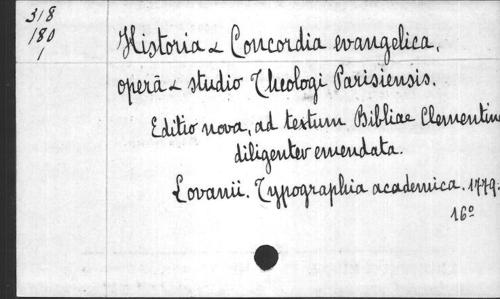 318
180
1
Historia & Concordia evangelica,
operâ & studio Theologi Parisiensis.
Editio nova, ad textum Bibliae Clementin
diligenter emendata.
Lovanii. Typographia academica. 1779.
16º